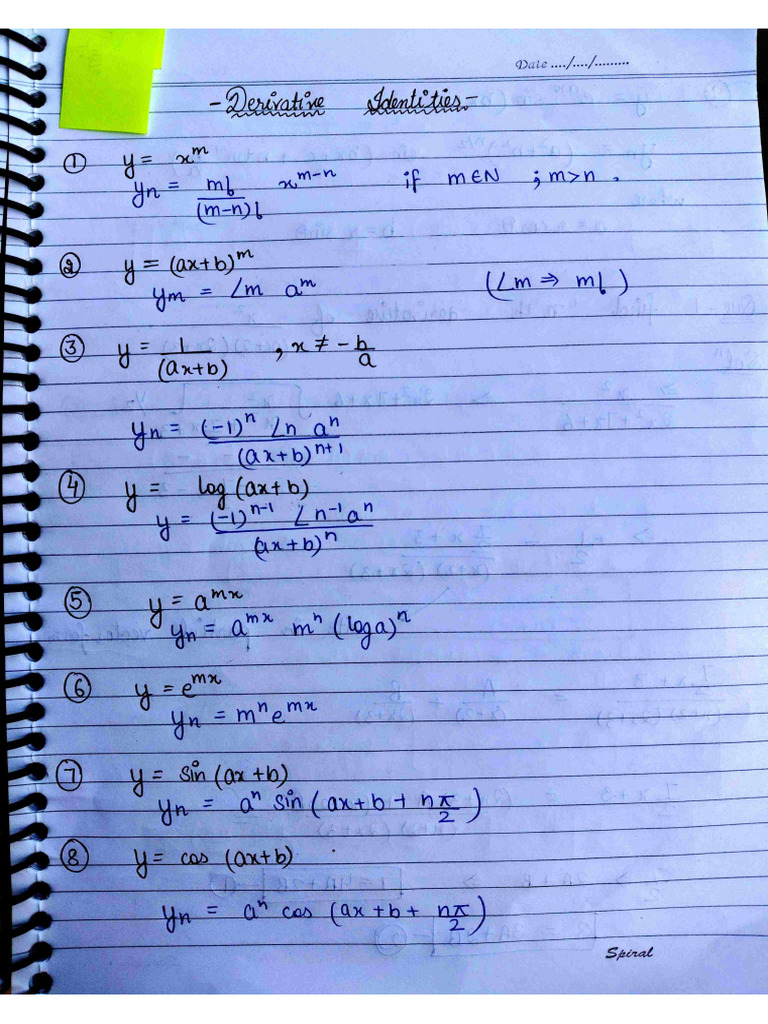 Date ..../..../.........
- Derivative Identities -
① y = x^m
y_n = m! / (m-n)! x^(m-n) if m∈N ; m>n .
② y = (ax+b)^m
y_m = ∠m a^m (∠m ⇒ m!)
③ y = 1/(ax+b) , x ≠ -b/a
y_n = (-1)^n ∠n a^n / (ax+b)^(n+1)
④ y = log(ax+b)
y = (-1)^(n-1) ∠n-1 a^n / (ax+b)^n
⑤ y = a^(mx)
y_n = a^(mx) m^n (log a)^n
⑥ y = e^(mx)
y_n = m^n e^(mx)
⑦ y = sin (ax+b)
y_n = a^n sin (ax+b + nπ/2)
⑧ y = cos (ax+b)
y_n = a^n cos (ax+b + nπ/2)
Spiral